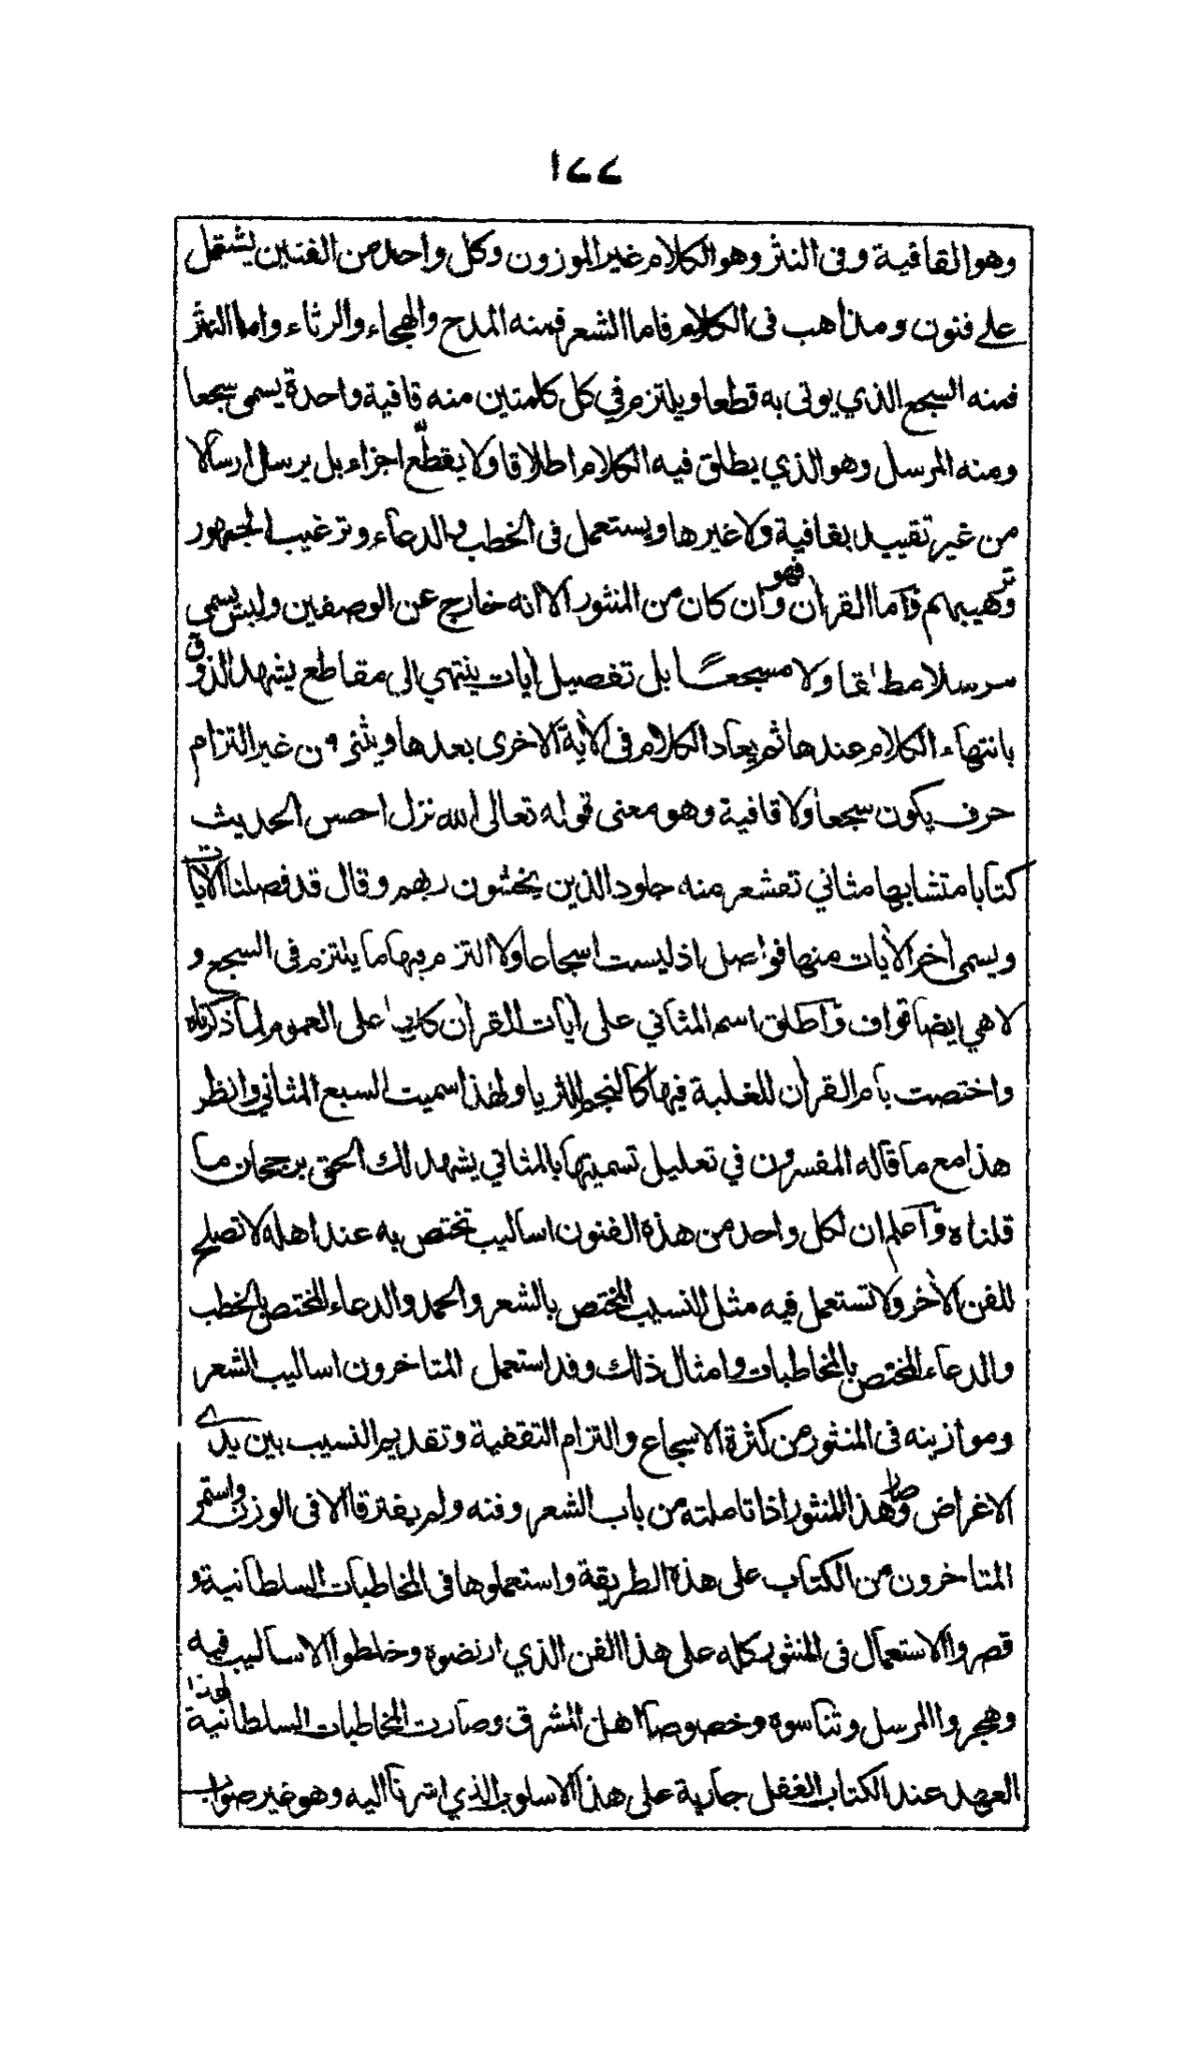 ١٢٢
وهو القافية وفى النثر وهو الكلام غير الموزون وكل واحد من الفنين يشتمل
على فنون ومذاهب فى الكلام فاما الشعر فمنه المدح والهجاء والرثاء واما النثر
فمنه السجع الذي يوتى به قطعا ويلتزم في كل كلمتين منه قافية واحدة يسمى سجعا
ومنه المرسل وهو الذي يطلق فيه الكلام اطلاقا ولا يقطّع اجزاء بل يرسل ارسالا
من غير تقييد بقافية ولا غيرها ويستعمل فى الخطب والدعاء وترغيب الجمهور
وترهيبهم وآما القرأن فهو وآن كان من المنثور الا انه خارج عن الوصفين وليس يسمى
مرسلا مطلقا ولا مسجعًا بل تفصيل أيات ينتهي الى مقاطع يشهد الذوق
بانتهاء الكلام عندها ثم يعاد الكلام فى الأية الاخرى بعدها ويثنى من غير التزام
حرف يكون سجعا ولا قافية وهو معنى قوله تعالى الله نزل احسن الحديث
كتابا متشابها مثاني تقشعر منه جلود الذين يخشون ربهم وقال قد فصلنا الأيات
ويسمى أخر الأيات منها فواصل اذ ليست اسجاعا ولا التزم فيها ما يلتزم فى السجع و
لا هي ايضا قواف وآطلق اسم المثاني على أيات القرأن كلها على العموم لما ذكرناه
واختصت بأم القرأن للغلبة فيها كالنجم للثريا ولهذا سميت السبع المثاني وانظر
هذا مع ما قاله المفسرون في تعليل تسميتها بالمثاني يشهد لك الحق برجحان ما
قلناه وآعلم ان لكل واحد من هذه الفنون اساليب تختص به عند اهله لا تصلح
للفن الأخر ولا تستعمل فيه مثل النسيب المختص بالشعر والحمد والدعاء المختص بالخطب
والدعاء المختص بالمخاطبات وامثال ذالك وقد استعمل المتاخرون اساليب الشعر
وموازينه فى المنثور من كثرة الاسجاع والتزام التقفية وتقديم النسيب بين يدي
الاغراض وصار هذا المنثور اذا تاملته من باب الشعر وفنه ولم يفترقا الا فى الوزن واستمر
المتاخرون من الكتاب على هذه الطريقة واستعملوها فى المخاطبات السلطانية و
قصروا الاستعمال فى المنثور كله على هذا الفن الذي ارتضوه وخلطوا الاساليب فيه
وهجروا المرسل وتناسوه وخصوصا اهل المشرق وصارت المخاطبات السلطانية لهذا
العهد عند الكتاب الغفل جارية على هذا الاسلوب الذي اشرنا اليه وهو غير صواب